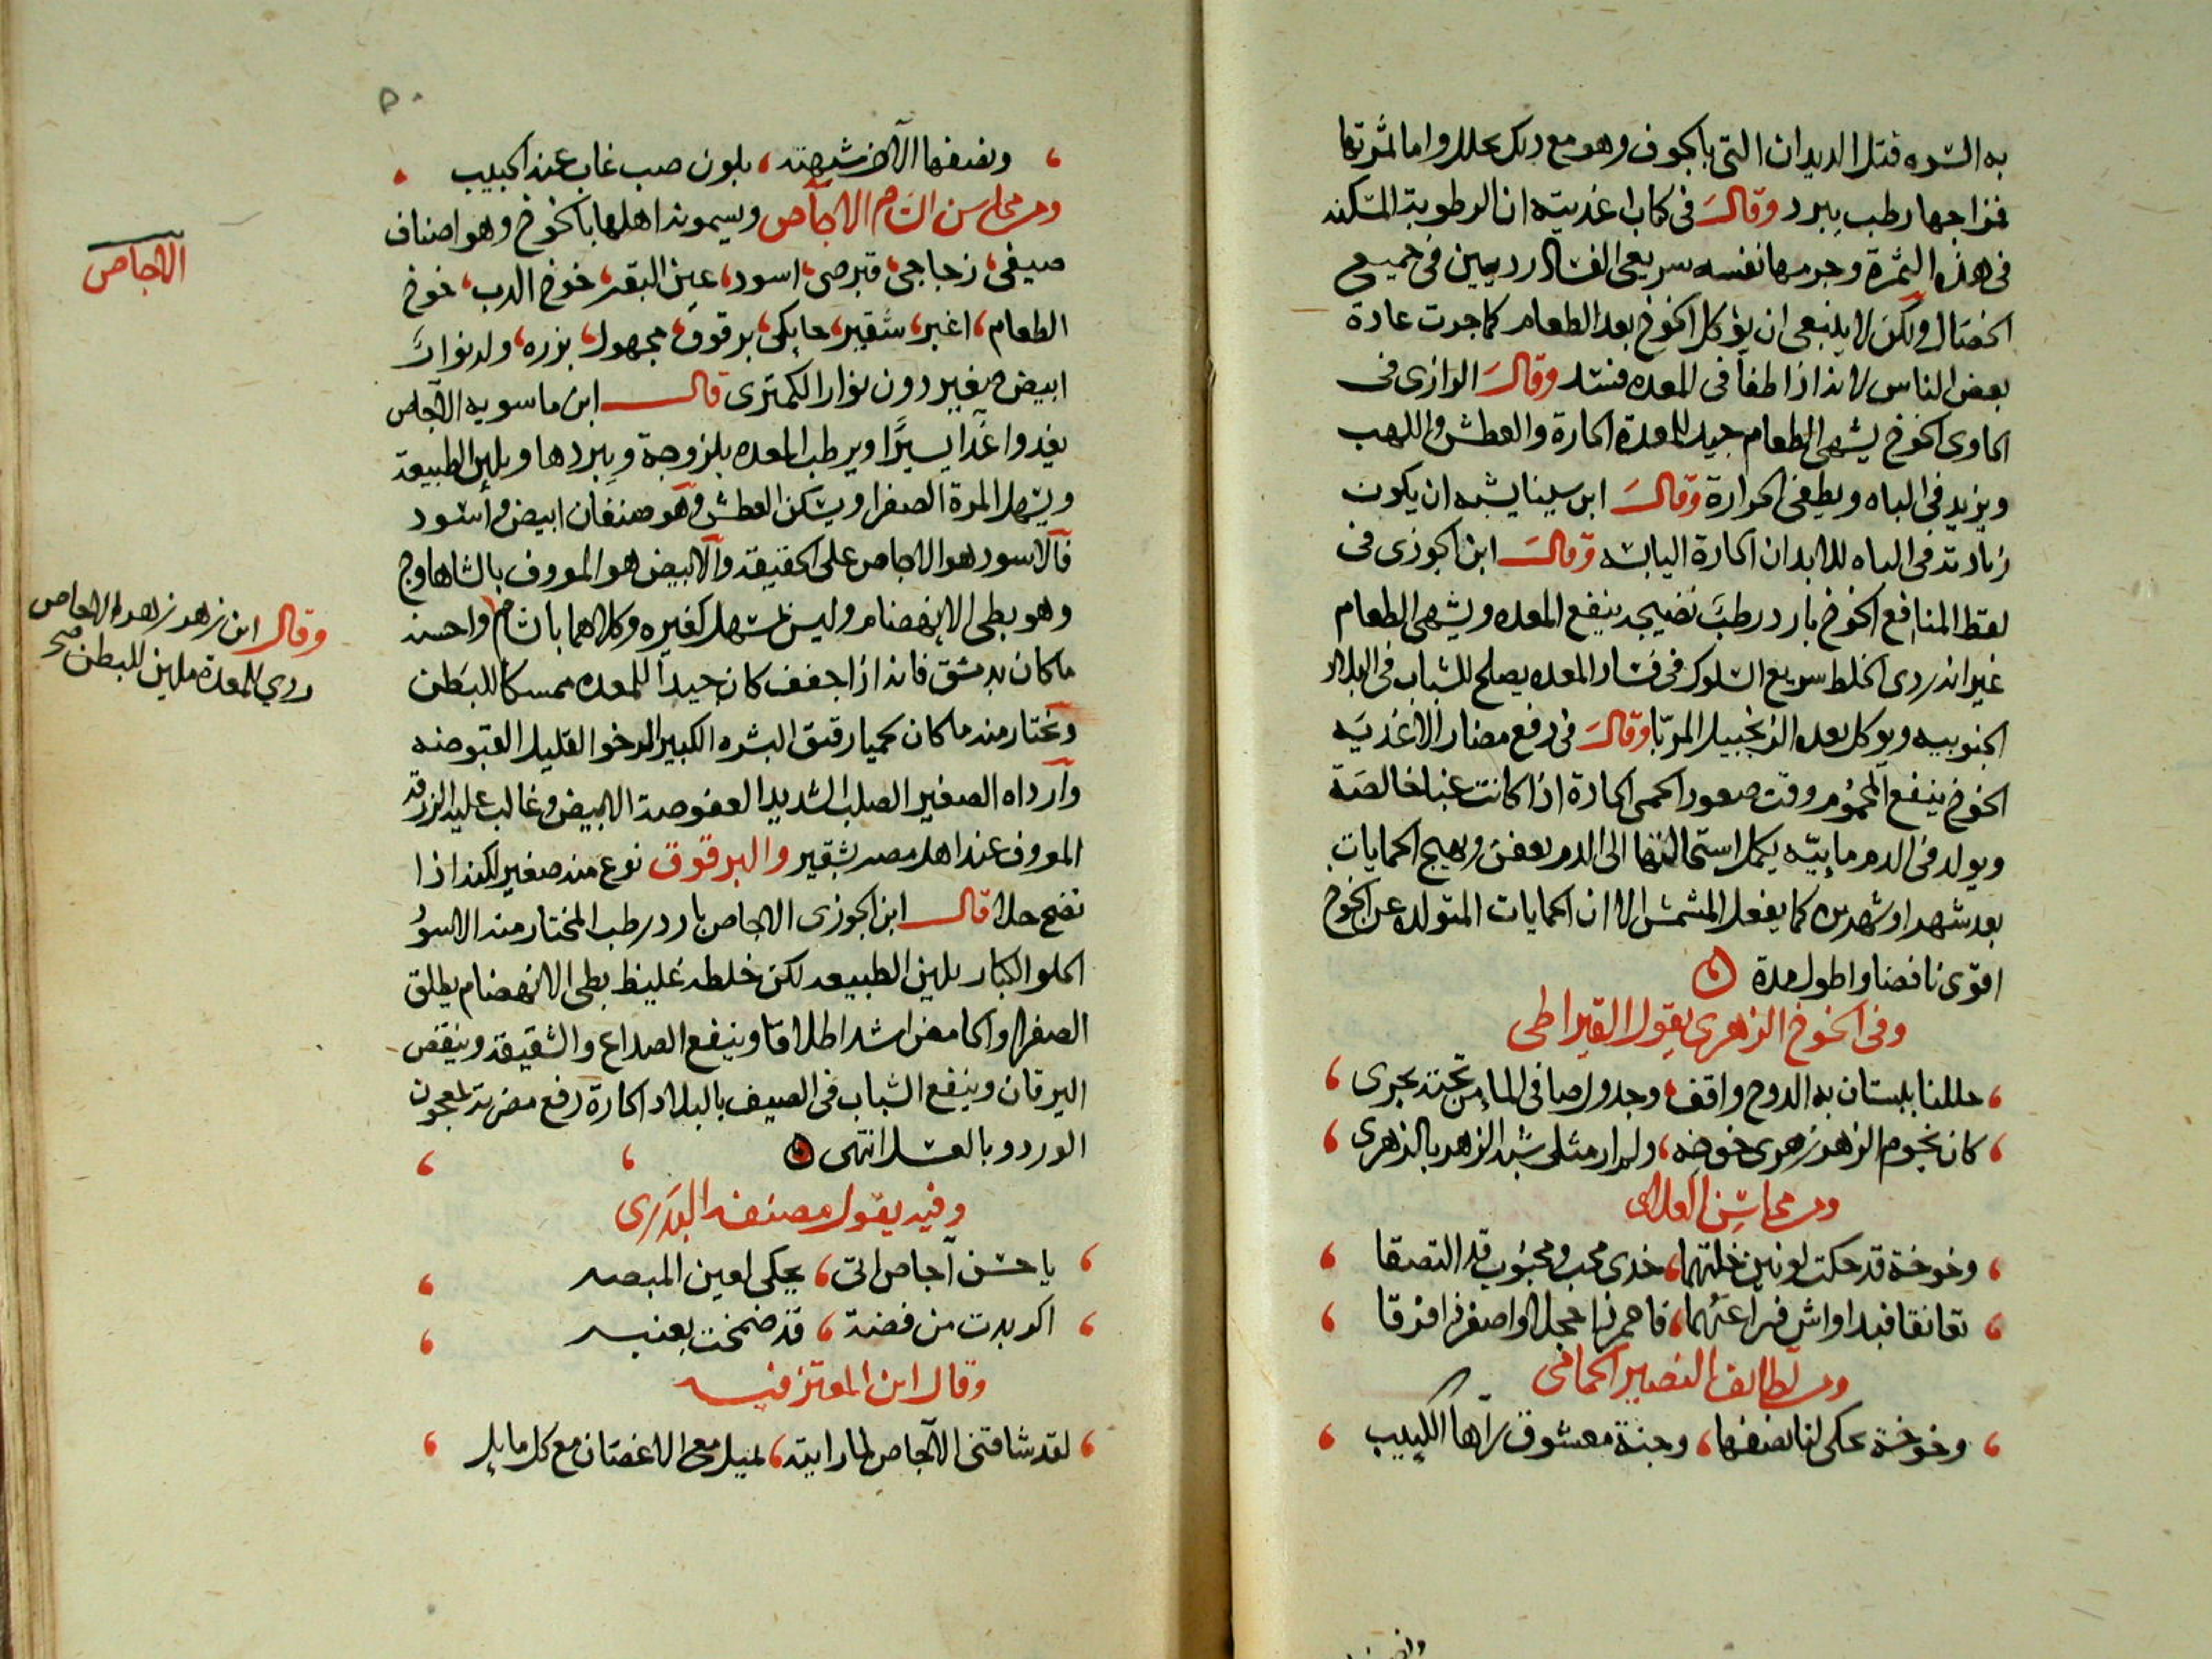 به السره قتل الديدان التي بالجوف وهو مع ذلك محلل واما ثمرتها
فمزاجها رطب ببرد وقال في كتاب اغذيته ان الرطوبة المتكنه
في هذه الثمرة وجرمها نفسه سريعي الفساد رديين في جميع
الخصال ولكن لا ينبغي ان يؤكل الخوخ بعد الطعام كما جرت عادة
بعض الناس لانه اذا طفا في المعده فسد وقال الرازي في
الحاوي الخوخ يشهي الطعام جيد للمعدة الحارة والعطش واللهب
ويزيد في الباه ويطفي الحرارة وقال ابن سينا يشبه ان يكون
زيادته في الباه للابدان الحارة اليابسه وقال ابن الجوزي في
لقط المنافع الخوخ بارد رطب نضيجه ينفع المعده ويشهي الطعام
غير انه ردي الخلط سريع السلوك في فساد المعده يصلح للشباب في البلاد
الجنوبيه ويوكل بعده الزنجبيل المربا وقال في دفع مضار الاغذيه
الخوخ ينفع المحموم وقت صعود الحمى الحارة اذا كانت غبا خالصة
ويولد في الدم مايية يكمل استحالتها الى الدم بعفن ويهيج الحمايات
بعد شهر او شهرين كما يفعل المشمش الا ان الحمايات المتولده عن الخوخ
اقوى نافضا واطول مدة
وفي الخوخ الزهري يقول القيراطي
حللنا ببستان به الدوح واقف ، وجدول صافي الماء من تحته يجري
كان نجوم الزهر زهري خوخه ، ولم ار مثلي شبه الزهر بالزهري
ومن محاسن العلاي
وخوخة قد حكت لونين خلتهما ، خدي محب ومحبوب قد التصقا
تعانقا فبدا واش فراعهما ، فاحمر ذا خجلا واصفر ذا فرقا
ومن لطايف النصير الحمامي
وخوخة يحكي لنا نصفها ، وجنة معشوق رآها الكييب
٥٠
ونصفها الآخر شبهته ، بلون صب غاب عنه الحبيب
ومن محاسن الشام الاجاص ويسمونه اهلها بالخوخ وهو اصناف
صيفي ، زجاجي ، قبرصي ، اسود ، عين البقر ، خوخ الدب ، خوخ
الطعام ، اغبر ، شقير ، حابكي ، برقوق ، مجهول ، بزره ، وله نوار
ابيض صغير دون نوار الكمثرى قال ابن ماسويه الاجاص
يغدوا غدا يسيرا ويرطب المعده بلزوجة ويبردها ويلين الطبيعة
ويسهل المرة الصفرا ويسكن العطش وهو صنفان ابيض واسود
فالاسود هو الاجاص على الحقيقة والابيض هو المعروف بالشاهلوج
وهو بطي الانهضام وليس بمسهل كغيره وكلاهما بالشام واحسنه
ما كان بدمشق فانه اذا جفف كان جيدا للمعده ممسكا للبطن
ويختار منه ما كان لحميا رقيق البشره الكبير الرخو القليل القبوضه
واراده الصغير الصلب الشديد العفوصة الابيض وغالب عليه الزرقة
المعروف عند اهل مصر بشقير والبرقوق نوع منه صغير لكنه اذا
نضج حلا قال ابن الجوزي الاجاص بارد رطب المختار منه الاسود
الحلو الكبار يلين الطبيعه لكن خلطه غليظ بطي الانهضام يطلق
الصفرا والحامض اشد اطلاقا وينفع الصداع والشقيقة وينقص
اليرقان وينفع الشباب في الصيف بالبلاد الحارة دفع مضرته بمعجون
الورد وبالعسل انتهى
وفيه يقول مصنفه البدري
يا حسن آجاص اتى ، يحكي لعين المبصر
اكر بدت من فضة ، قد ضمخت بعنبر
وقال ابن المعتز فيه
لقد شاقني الاجاص لما رايته ، يميل مع الاغصان مع كل مايل
الاجاص
وقال ابن زهر زهر الاجاص
ردي للمعدة ملين للبطن صح